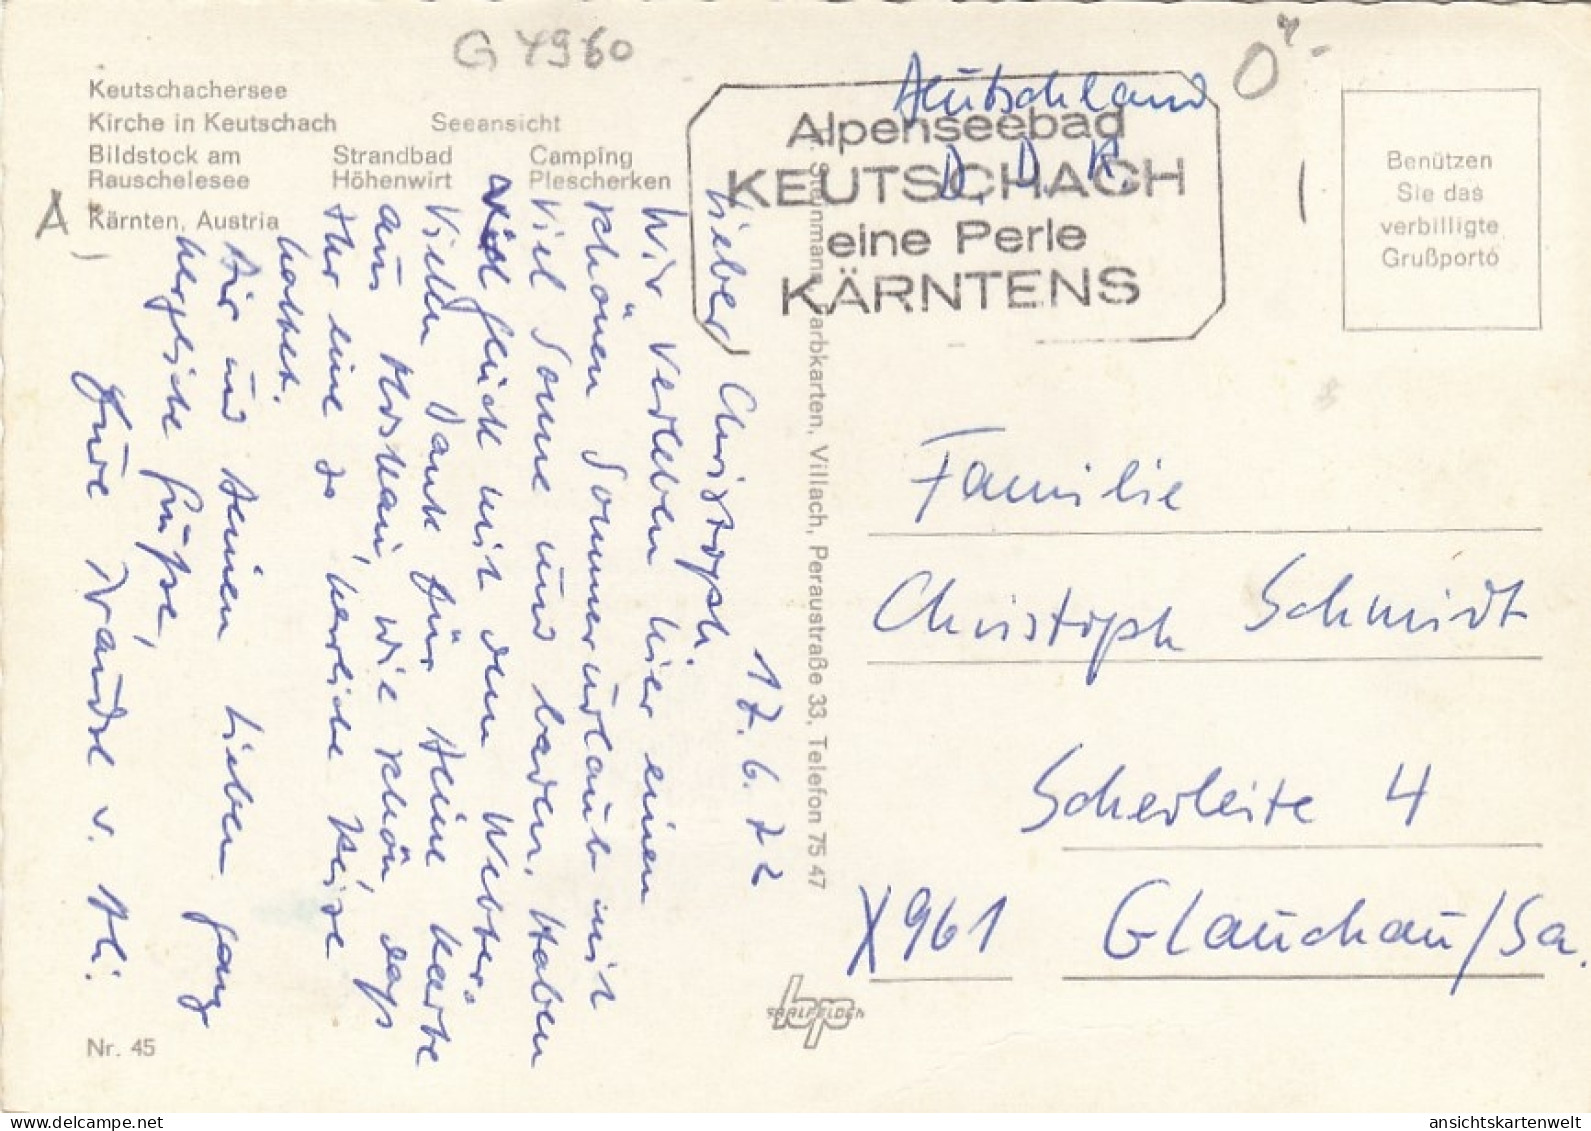 G 4960
0
Keutschachersee
Kirche in Keutschach Seeansicht
Bildstock am Strandbad Camping
Rauschelesee Höhenwirt Plescherken
Kärnten, Austria
A
Deutschland
D. D. R.
Alpenseebad
KEUTSCHACH
eine Perle
KÄRNTENS
Benützen
Sie das
verbilligte
Grußporto
17.6.72
Lieber Christoph
Wir verleben hier einen
schönen Sommerurlaub mit
viel Sonne und baden. Haben
Glück mit dem Wetter.
Vielen Dank für Deine Karte
aus Moskau, wie schön daß
Ihr eine so herrliche Reise
hattet.
Dir und Deinen Lieben ganz
herzliche Grüße,
Eure Traudl v. Hli.
Steinmann, Farbkarten, Villach, Peraustraße 33, Telefon 75 47
Familie
Christoph Schmidt
Scherleite 4
X961 Glauchau/Sa.
hp
SAALFELDEN
Nr. 45
https://www.delcampe.net
ansichtskartenwelt